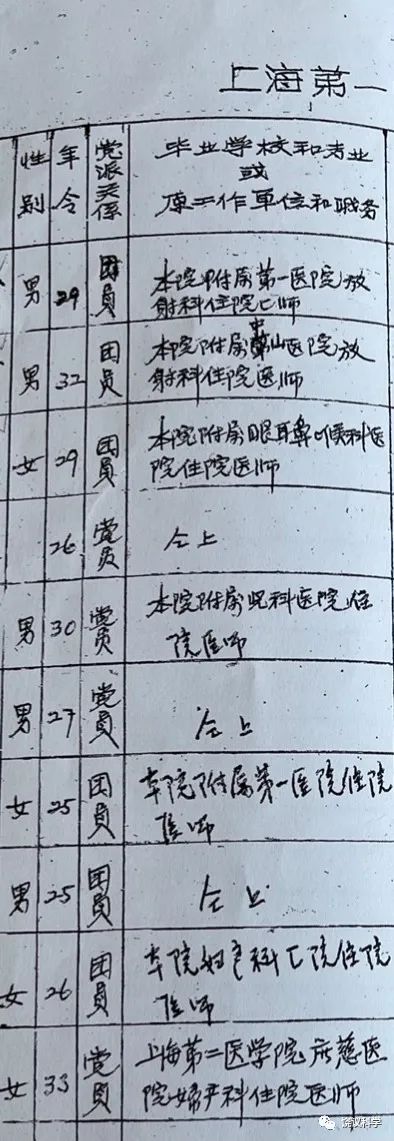 上海第一
性别 年令 党派关係 毕业学校和专业
或
原工作单位和职务
男 29 团员 本院附属第一医院放
射科住院匚师
男 32 团员 本院附属中山医院放
射科住院医师
女 29 团员 本院附属眼耳鼻喉科医
院住院医师
26 党员 仝上
男 30 党员 本院附属儿科医院住
院医师
男 27 党员 仝上
女 25 团员 本院附属第一医院住院
医师
男 25 团员 仝上
女 26 团员 本院妇产科匚院住院
医师
女 33 党员 上海第二医学院广慈医
院妇产科住院医师
深议科学